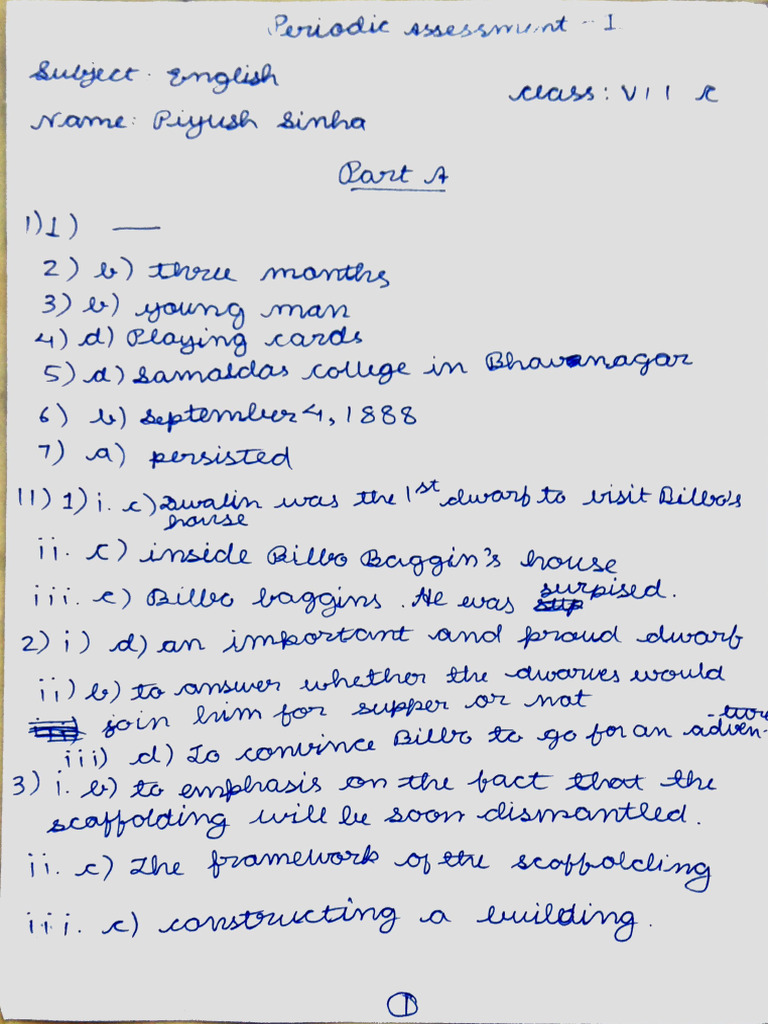 Periodic Assessment - I
Subject: English
Class: VII C
Name: Piyush Sinha
Part A
I) 1) —
2) b) three months
3) b) young man
4) d) Playing cards
5) d) Samaldas college in Bhavanagar
6) b) September 4, 1888
7) a) persisted
II) 1) i. c) Dwalin was the 1st dwarf to visit Bilbo's
house
ii. c) inside Bilbo Baggin's house
iii. c) Bilbo baggins. He was surpised.
2) i) d) an important and proud dwarf
ii) b) to answer whether the dwarves would
join him for supper or not
iii) d) To convince Bilbo to go for an adven-ture
3) i. b) to emphasis on the fact that the
scaffolding will be soon dismantled.
ii. c) The framework of the scaffolding
iii. c) constructing a building.
1